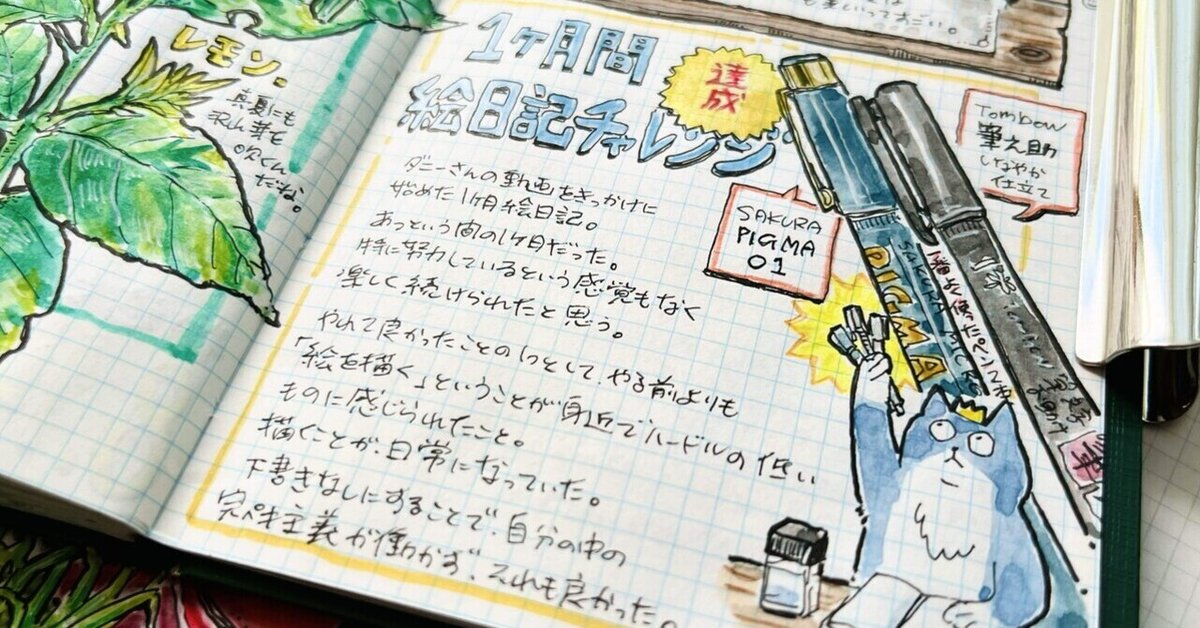 レモン。
真夏にも
沢山芽を
吹くん
だね。
1ヶ月間
絵日記チャレンジ
達成
ダニーさんの動画をきっかけに
始めた1ヶ月絵日記。
あっという間の1ヶ月だった。
特に努力しているという感覚もなく
楽しく続けられたと思う。
やれて良かったことの1つとして、やる前よりも
「絵を描く」ということが身近でハードルの低い
ものに感じられたこと。
描くことが、日常になっていた。
下書きなしにすることで、自分の中の
完ペキ主義が働かず、それも良かった。
SAKURA
PIGMA
01
Tombow
筆之助
しなやか
仕立て
PIGMA
一番よく使ったペンです